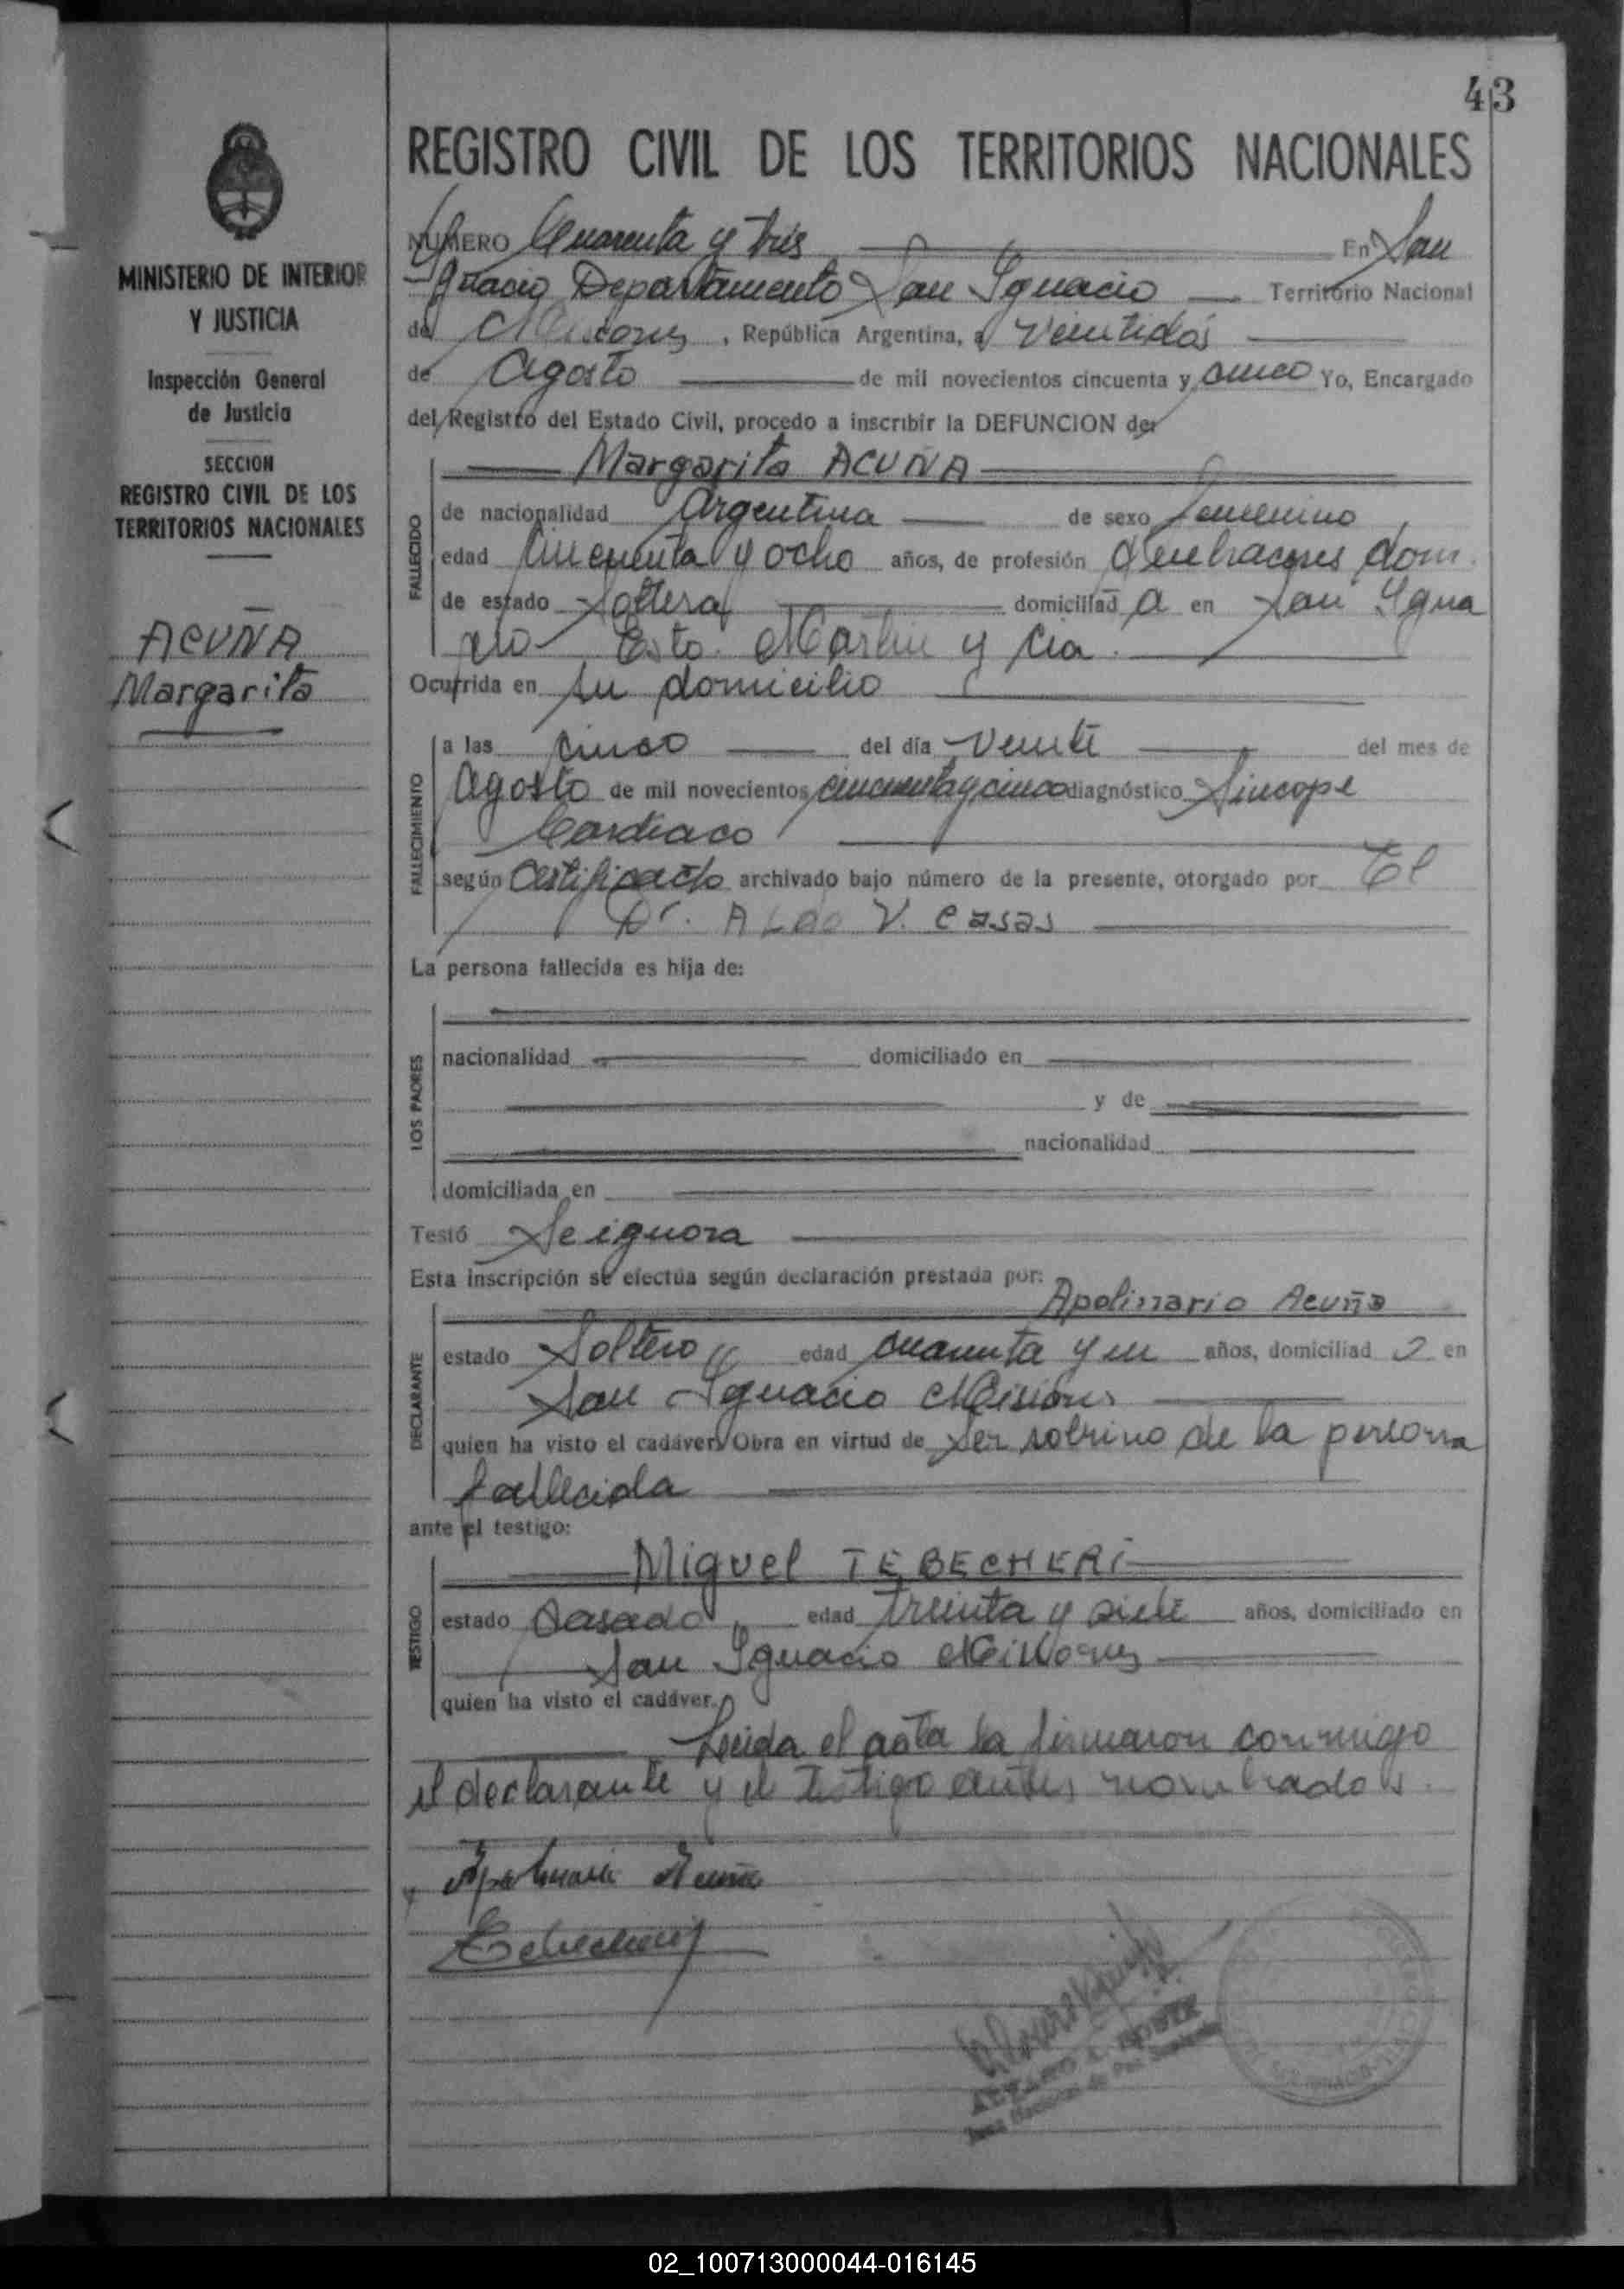 43
REGISTRO CIVIL DE LOS TERRITORIOS NACIONALES
MINISTERIO DE INTERIOR
Y JUSTICIA
Inspección General
de Justicia
SECCION
REGISTRO CIVIL DE LOS
TERRITORIOS NACIONALES
ACUÑA
Margarita
NUMERO Cuarenta y tres En San
Ignacio Departamento San Ignacio Territorio Nacional
de Misiones, República Argentina, a Veintidós
de Agosto de mil novecientos cincuenta y cinco Yo, Encargado
del Registro del Estado Civil, procedo a inscribir la DEFUNCION de:
FALLECIDO
Margarita ACUÑA
de nacionalidad Argentina de sexo femenino
edad cincuenta y ocho años, de profesión dom.
de estado Soltera domiciliad a en San Igna
cio Esto. Martin y Cia.
Ocurrida en su domicilio
FALLECIMIENTO
a las cinco del día Veinte del mes de
Agosto de mil novecientos cincuenta y cinco diagnóstico Sincope
Cardiaco
según Certificado archivado bajo número de la presente, otorgado por El
Dr. ALDO V. Casas
La persona fallecida es hija de:
LOS PADRES
nacionalidad domiciliado en
y de
nacionalidad
domiciliada en
Testó Se ignora
Esta inscripción se efectúa según declaración prestada por:
Apolinario Acuña
DECLARANTE
estado Soltero edad cuarenta y un años, domiciliad o en
San Ignacio Misiones
quien ha visto el cadáver. Obra en virtud de ser sobrino de la persona
fallecida
ante el testigo:
Miguel TEBECHERI
TESTIGO
estado Casado edad treinta y siete años, domiciliado en
San Ignacio Misiones
quien ha visto el cadáver.
Leida el acta la firmaron conmigo
el declarante y el testigo antes nombrados.
Apolinario Acuña
Tebecheri
02_100713000044-016145